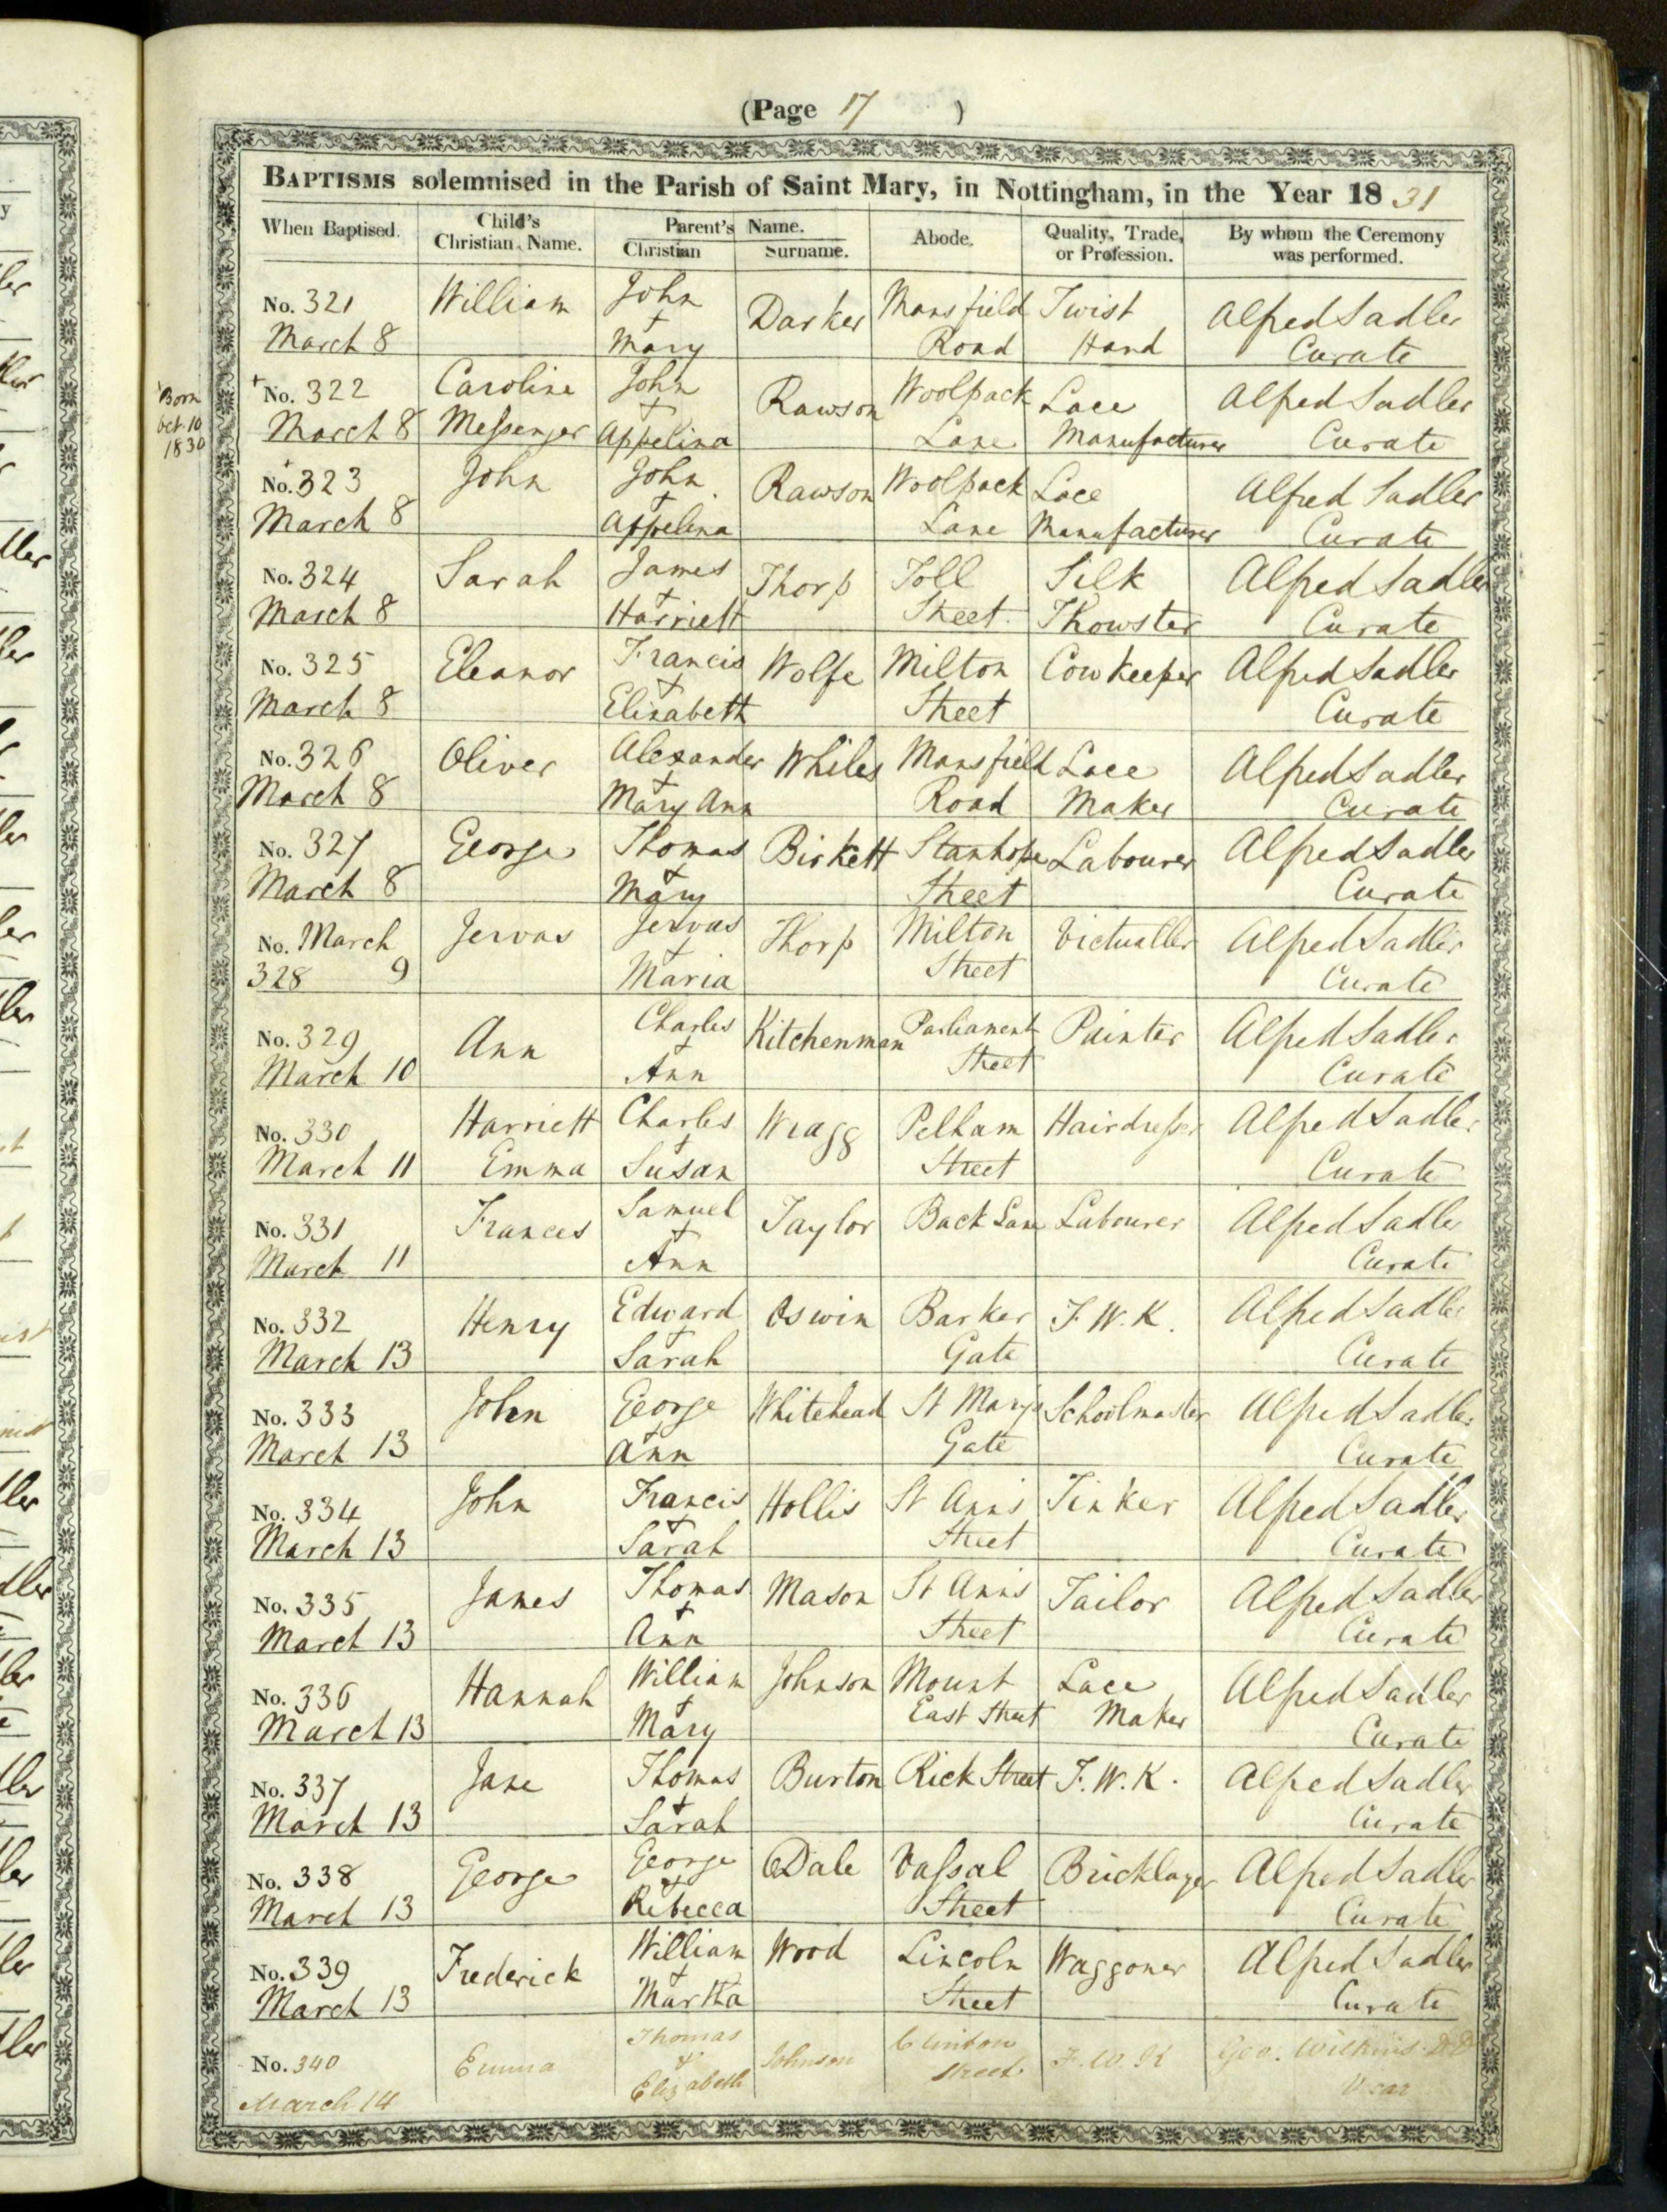 (Page 17 )
BAPTISMS solemnised in the Parish of Saint Mary, in Nottingham, in the Year 18 31
When Baptised. Child's Christian Name. Parent's Name. Christian Surname. Abode. Quality, Trade, or Profession. By whom the Ceremony was performed.
No. 321 William John Darker Mansfield Twist Alfred Sadler
March 8 + Mary Road Hand Curate
Born Oct 10 1830
+ No. 322 Caroline John Rawson Woolpack Lace Alfred Sadler
March 8 Messenger + Appelina Lane Manufacturer Curate
No. 323 John John Rawson Woolpack Lace Alfred Sadler
March 8 Appelina Lane Manufacturer Curate
No. 324 Sarah James Thorp Toll Silk Alfred Sadler
March 8 + Harriett Street Thowster Curate
No. 325 Eleanor Francis Wolfe Milton Cowkeeper Alfred Sadler
March 8 + Elizabeth Street Curate
No. 326 Oliver Alexander Whiles Mansfield Lace Alfred Sadler
March 8 + Mary Ann Road Maker Curate
No. 327 George Thomas Birkett Stanhope Labourer Alfred Sadler
March 8 + Mary Street Curate
No. March Jervas Jervas Thorp Milton Victualler Alfred Sadler
328 9 + Maria Street Curate
No. 329 Ann Charles Kitchenman Parliament Painter Alfred Sadler
March 10 + Ann Street Curate
No. 330 Harriett Charles Wragg Pelham Hairdresser Alfred Sadler
March 11 Emma + Susan Street Curate
No. 331 Frances Samuel Taylor Back Lane Labourer Alfred Sadler
March 11 + Ann Curate
No. 332 Henry Edward Oswin Barker F.W.K. Alfred Sadler
March 13 + Sarah Gate Curate
No. 333 John George Whitehead St Mary's Schoolmaster Alfred Sadler
March 13 + Ann Gate Curate
No. 334 John Francis Hollis St Ann's Tinker Alfred Sadler
March 13 + Sarah Street Curate
No. 335 James Thomas Mason St Ann's Tailor Alfred Sadler
March 13 + Ann Street Curate
No. 336 Hannah William Johnson Mount Lace Alfred Sadler
March 13 + Mary East Street Maker Curate
No. 337 Jane Thomas Burton Rick Street F.W.K. Alfred Sadler
March 13 + Sarah Curate
No. 338 George George Dale Vassal Bricklayer Alfred Sadler
March 13 + Rebecca Street Curate
No. 339 Frederick William Wood Lincoln Waggoner Alfred Sadler
March 13 + Martha Street Curate
No. 340 Emma Thomas Johnson Clinton F.W.K Geo. Wilkins D.D
March 14 & Elizabeth Street Vicar